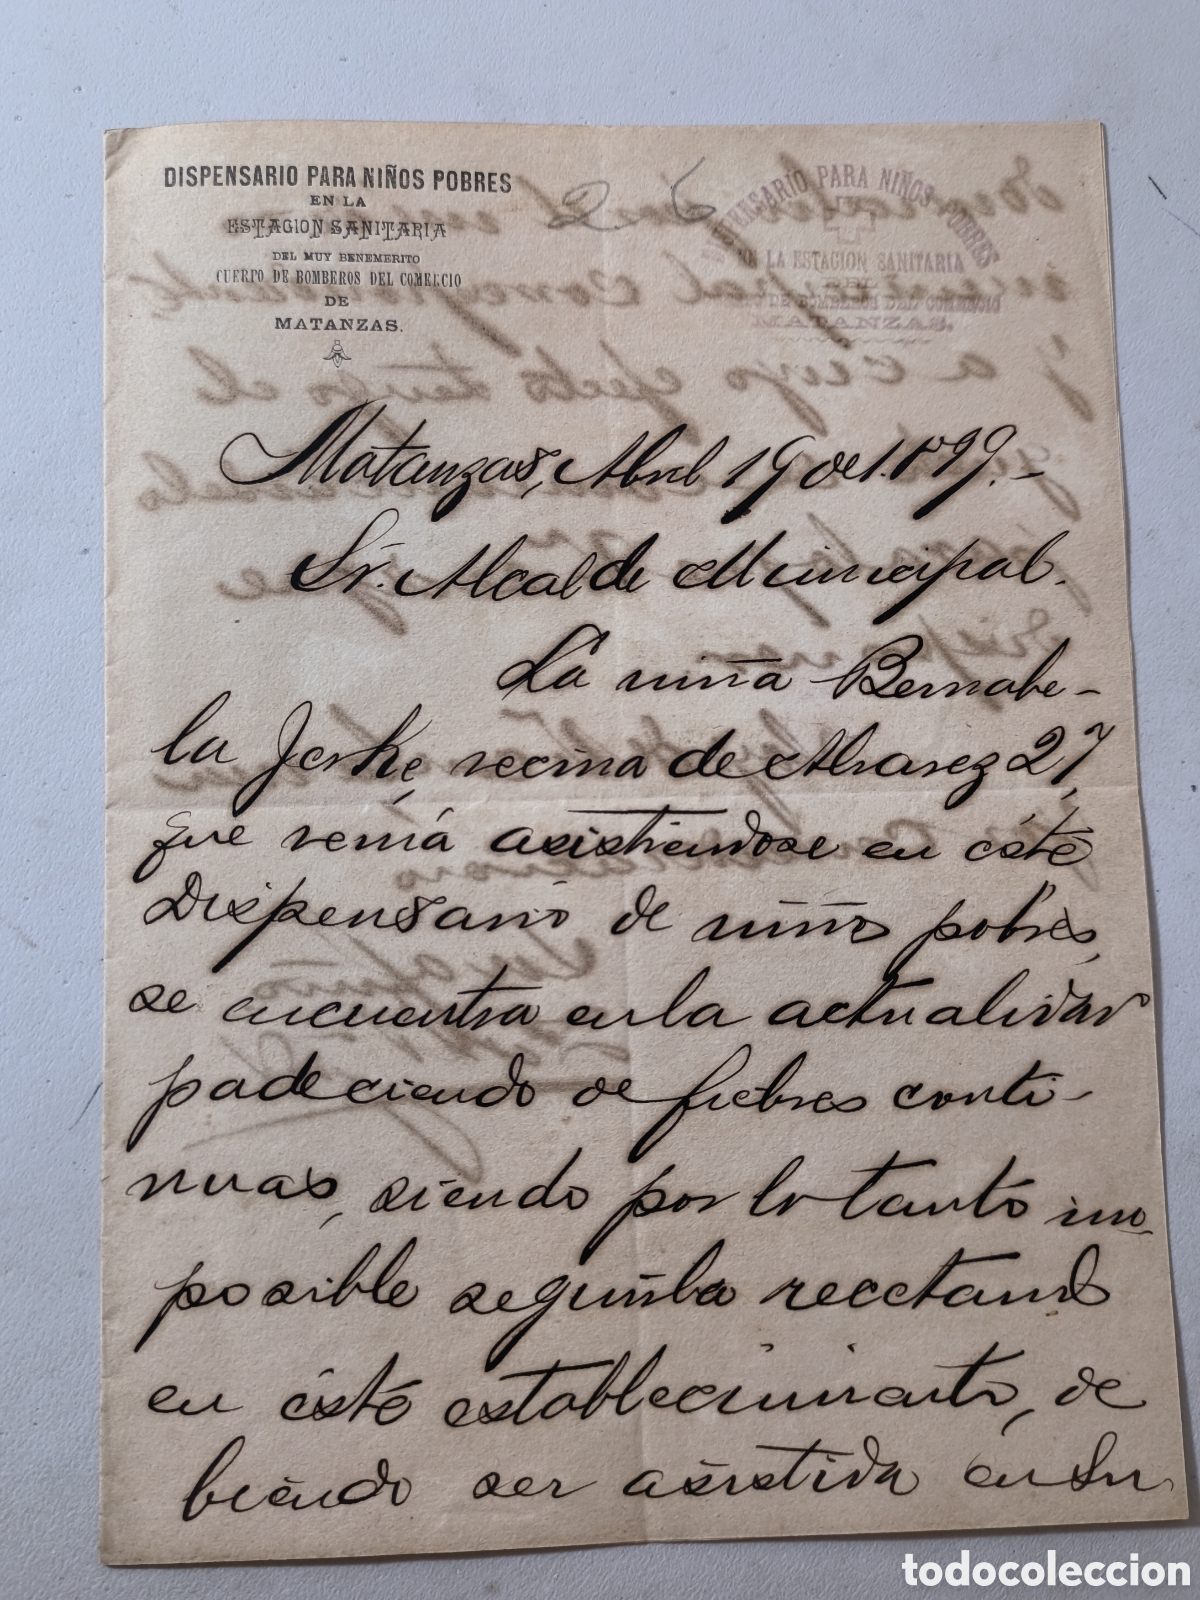 DISPENSARIO PARA NIÑOS POBRES
EN LA
ESTACION SANITARIA
DEL MUY BENEMERITO
CUERPO DE BOMBEROS DEL COMERCIO
DE
MATANZAS.
2 6
DISPENSARIO PARA NIÑOS POBRES
EN LA ESTACION SANITARIA
DEL
DE BOMBEROS DEL COMERCIO
MATANZAS.
Matanzas, Abril 19 de 1.899.-
Sr. Alcalde Municipal.
La niña Bernabe-
la Jorke, vecina de Alvarez 27,
que venía asistiendose en éste
Dispensario de niños pobres,
se encuentra en la actualidad
padeciendo de fiebres conti-
nuas, siendo por lo tanto im-
posible seguirla recetando
en éste establecimiento, de
biendo ser asistida en su
todocoleccion